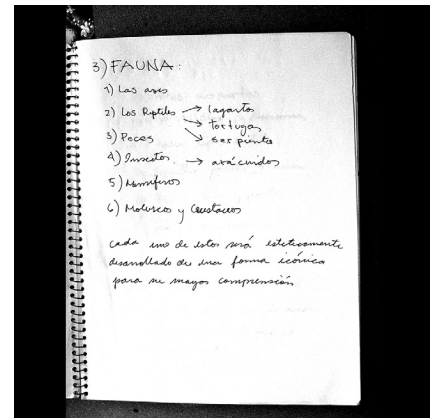 3) FAUNA:
1) Las aves
2) Los Reptiles → lagartos
→ tortugas
3) Peces → serpientes
4) Insectos → arácnidos
5) Mamíferos
6) Moluscos y Crustáceos
cada uno de estos será esteticamente
desarrollado de una forma icónica
para su mayor comprensión